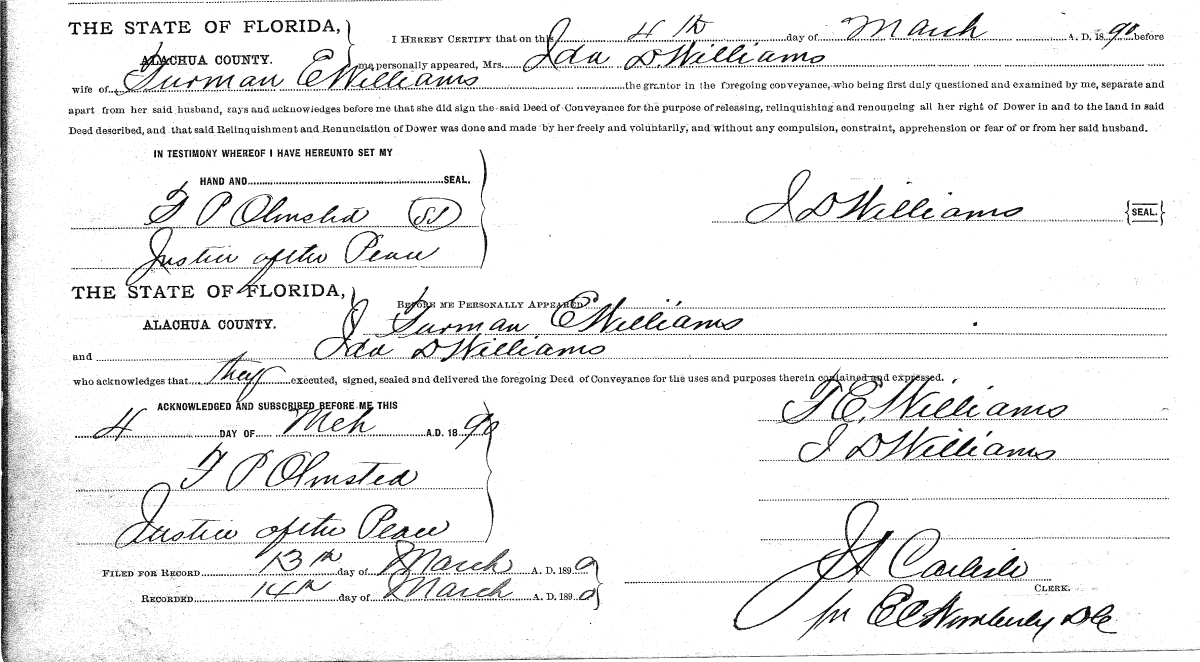 THE STATE OF FLORIDA,
ALACHUA COUNTY.
I HEREBY CERTIFY that on this 4th day of March A. D. 1890 before
me personally appeared, Mrs. Ida D. Williams
wife of Furman E Williams the grantor in the foregoing conveyance, who being first duly questioned and examined by me, separate and
apart from her said husband, says and acknowledges before me that she did sign the said Deed of Conveyance for the purpose of releasing, relinquishing and renouncing all her right of Dower in and to the land in said
Deed described, and that said Relinquishment and Renunciation of Dower was done and made by her freely and voluntarily, and without any compulsion, constraint, apprehension or fear of or from her said husband.
IN TESTIMONY WHEREOF I HAVE HEREUNTO SET MY
HAND AND SEAL.
F P Olmsted
Justice of the Peace
I D Williams {SEAL.}
THE STATE OF FLORIDA,
ALACHUA COUNTY.
BEFORE ME PERSONALLY APPEARED
Furman E Williams
and Ida D Williams
who acknowledges that they executed, signed, sealed and delivered the foregoing Deed of Conveyance for the uses and purposes therein contained and expressed.
ACKNOWLEDGED AND SUBSCRIBED BEFORE ME THIS
4 DAY OF Mch A.D. 1890
F P Olmsted
Justice of the Peace
F. E. Williams
I D Williams
FILED FOR RECORD 13th day of March A. D. 1890
RECORDED 14th day of March A. D. 1890
J A Carlisle
CLERK.
per E C Wimberly D C